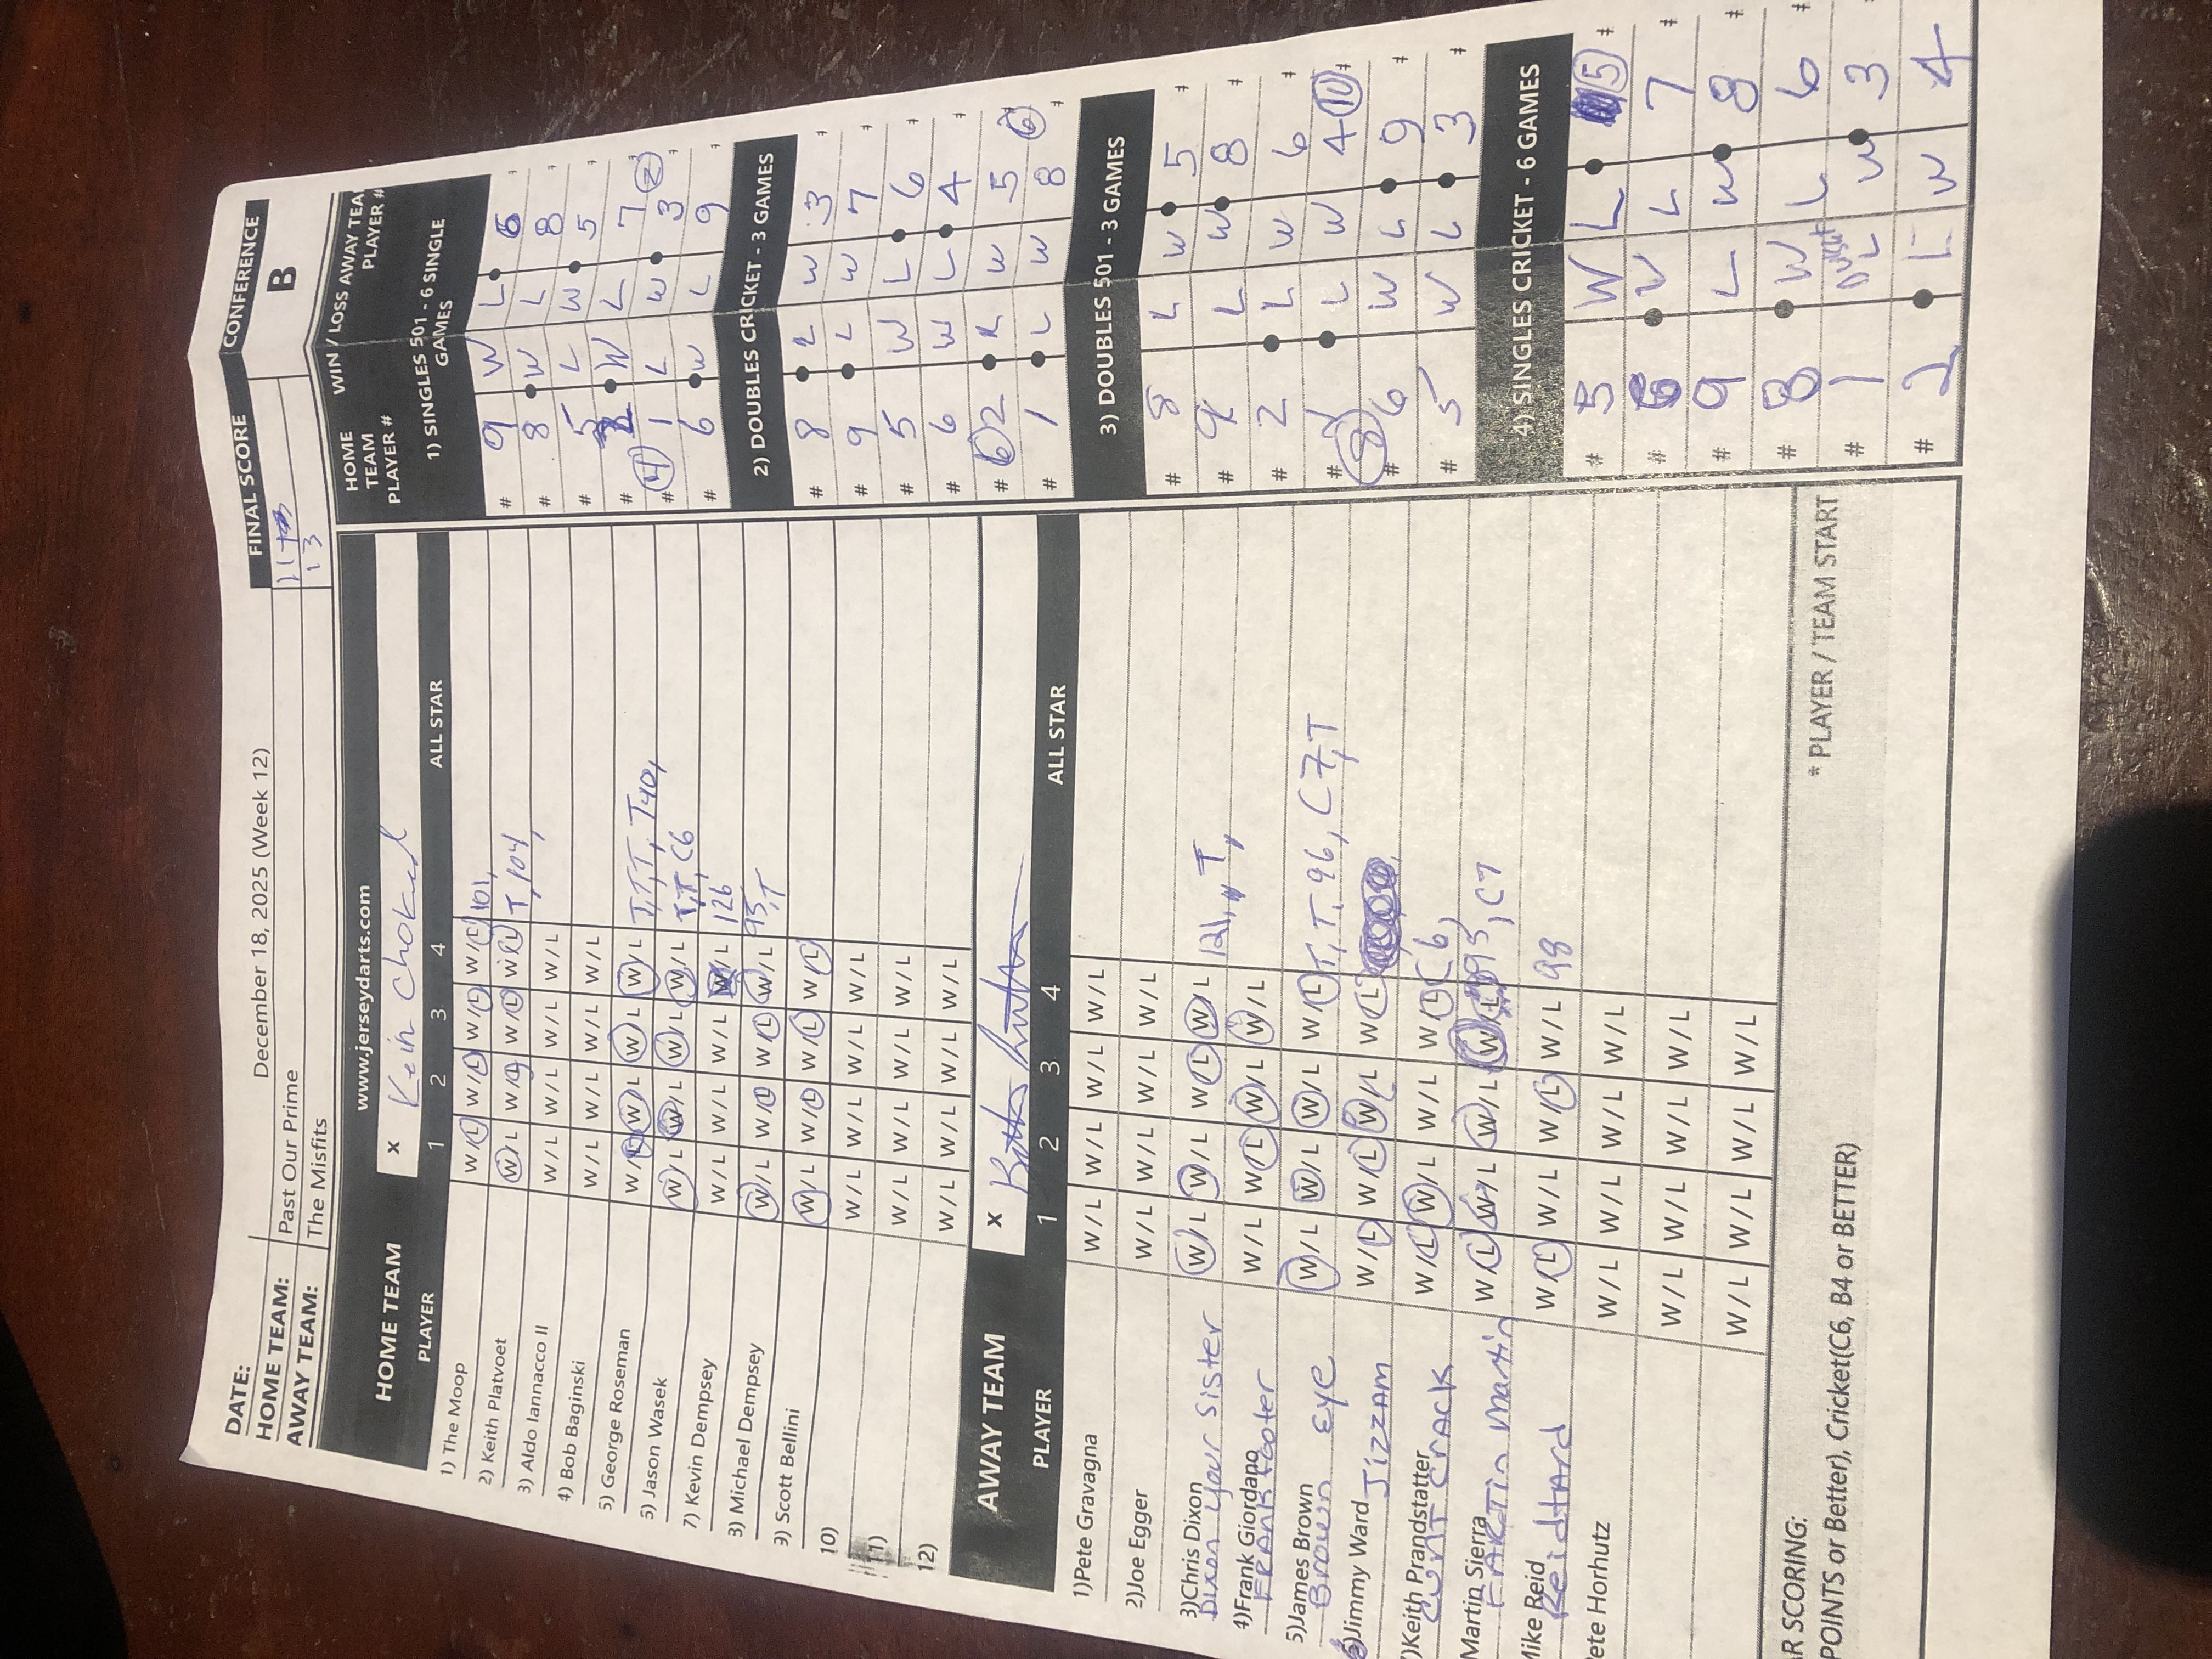 DATE: December 18, 2025 (Week 12)
FINAL SCORE
CONFERENCE
HOME TEAM: Past Our Prime 11
AWAY TEAM: The Misfits 13
B
HOME TEAM
www.jerseydarts.com
x
PLAYER 1 2 3 4 ALL STAR
1) The Moop W/L W/L W/L W/L 101,
2) Keith Platvoet W/L W/L W/L W/L T, 104,
3) Aldo Iannacco II W/L W/L W/L W/L
4) Bob Baginski W/L W/L W/L W/L
5) George Roseman W/L W/L W/L W/L T, T, T, T40,
5) Jason Wasek W/L W/L W/L W/L T, T, C6
7) Kevin Dempsey W/L W/L W/L W/L 126
3) Michael Dempsey W/L W/L W/L W/L 95, T
9) Scott Bellini W/L W/L W/L W/L
10) W/L W/L W/L W/L
11) W/L W/L W/L W/L
12) W/L W/L W/L W/L
AWAY TEAM
x
PLAYER 1 2 3 4 ALL STAR
1)Pete Gravagna W/L W/L W/L W/L
2)Joe Egger W/L W/L W/L W/L
3)Chris Dixon W/L W/L W/L W/L 121, T,
Dixon your sister
4)Frank Giordano W/L W/L W/L W/L
5)James Brown W/L W/L W/L W/L T, T. 96, C7, T
Brown Eye
6)Jimmy Ward Jizzam W/L W/L W/L W/L
)Keith Prandstatter W/L W/L W/L W/L C6,
Cunt Crack
Martin Sierra W/L W/L W/L W/L 95, C7
FARTin martin
Mike Reid W/L W/L W/L W/L 98
Reidtard
ete Horhutz W/L W/L W/L W/L
W/L W/L W/L W/L
W/L W/L W/L W/L
R SCORING:
POINTS or Better), Cricket(C6, B4 or BETTER)
* PLAYER / TEAM START
HOME TEAM PLAYER #
WIN / LOSS
AWAY TEA PLAYER #
1) SINGLES 501 - 6 SINGLE GAMES
# 9 W L 6
# 8 W L 8
# 5 L W 5
# W L 7
# 4 1 L W 3 2
# 6 W L 9
2) DOUBLES CRICKET - 3 GAMES
# 8 L W 3
# 9 L W 7
# 5 W L 6
# 6 W L 4
# 6 2 L W 5 6
# 1 L W 8
3) DOUBLES 501 - 3 GAMES
# 8 L W 5
# 9 L W 8
# 2 L W 6
# 1 L W 4 10
# 8 6 W L 9
# 5 W L 3
4) SINGLES CRICKET - 6 GAMES
# 5 W L 5
# 6 W L 7
# 9 L W 8
# 8 W L 6
# 1 L W 3
# 2 L W 4